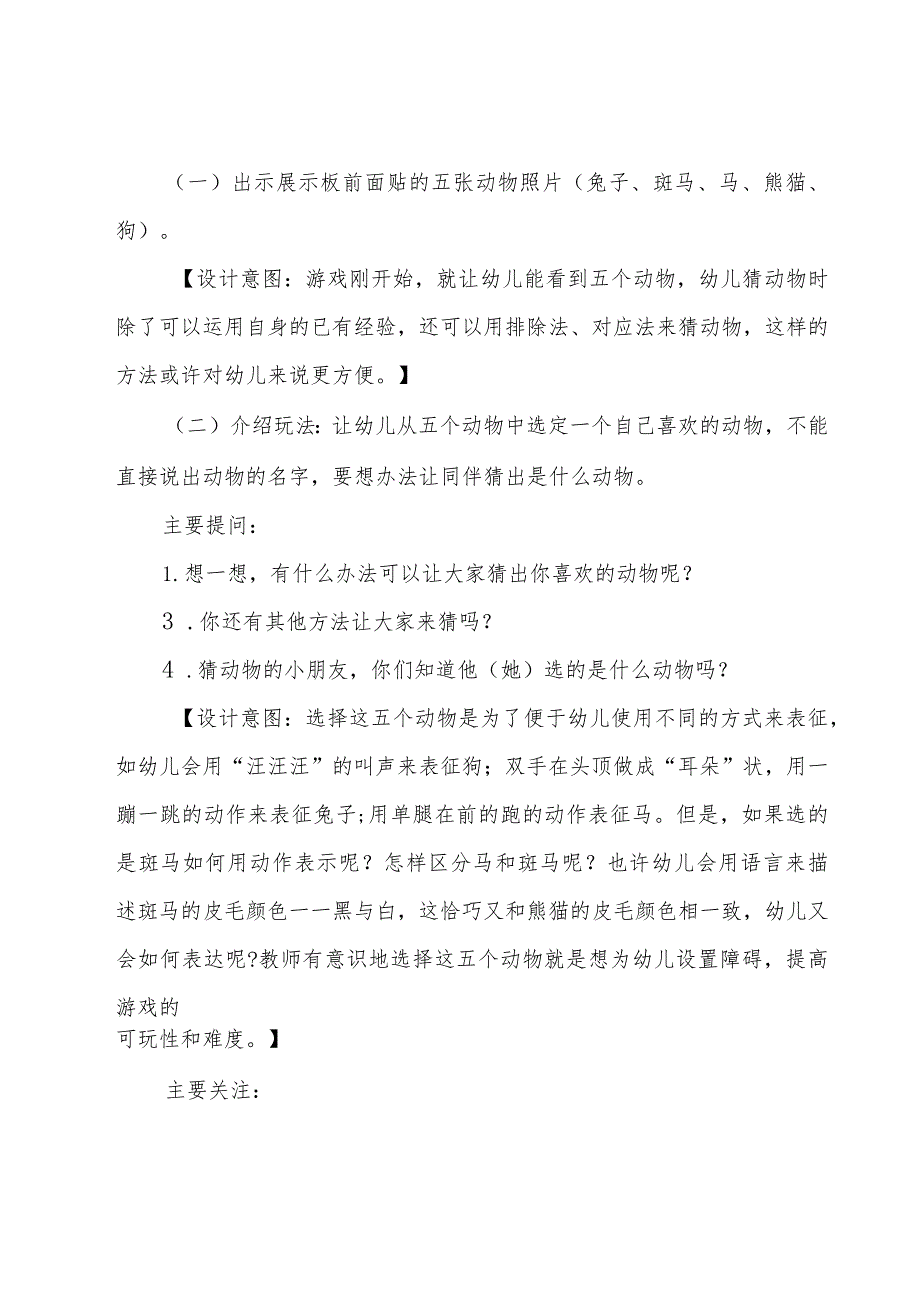 （一）出示展示板前面贴的五张动物照片（兔子、斑马、马、熊猫、
狗）。
【设计意图：游戏刚开始，就让幼儿能看到五个动物，幼儿猜动物时
除了可以运用自身的已有经验，还可以用排除法、对应法来猜动物，这样的
方法或许对幼儿来说更方便。】
（二）介绍玩法：让幼儿从五个动物中选定一个自己喜欢的动物，不能
直接说出动物的名字，要想办法让同伴猜出是什么动物。
主要提问：
1.想一想，有什么办法可以让大家猜出你喜欢的动物呢？
3 .你还有其他方法让大家来猜吗？
4 .猜动物的小朋友，你们知道他（她）选的是什么动物吗？
【设计意图：选择这五个动物是为了便于幼儿使用不同的方式来表征，
如幼儿会用“汪汪汪”的叫声来表征狗；双手在头顶做成“耳朵”状，用一
蹦一跳的动作来表征兔子;用单腿在前的跑的动作表征马。但是，如果选的
是斑马如何用动作表示呢？怎样区分马和斑马呢？也许幼儿会用语言来描
述斑马的皮毛颜色一一黑与白，这恰巧又和熊猫的皮毛颜色相一致，幼儿又
会如何表达呢?教师有意识地选择这五个动物就是想为幼儿设置障碍，提高
游戏的
可玩性和难度。】
主要关注：